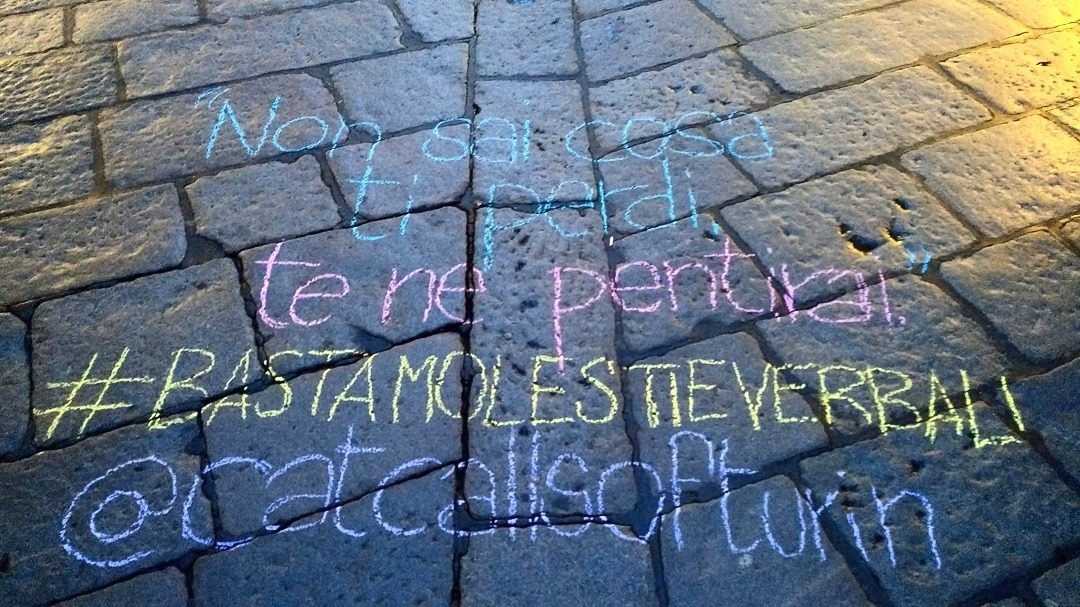 "Non sai cosa
ti perdi,
te ne pentirai."
#BASTAMOLESTIEVERBALI
@catcallsofturin